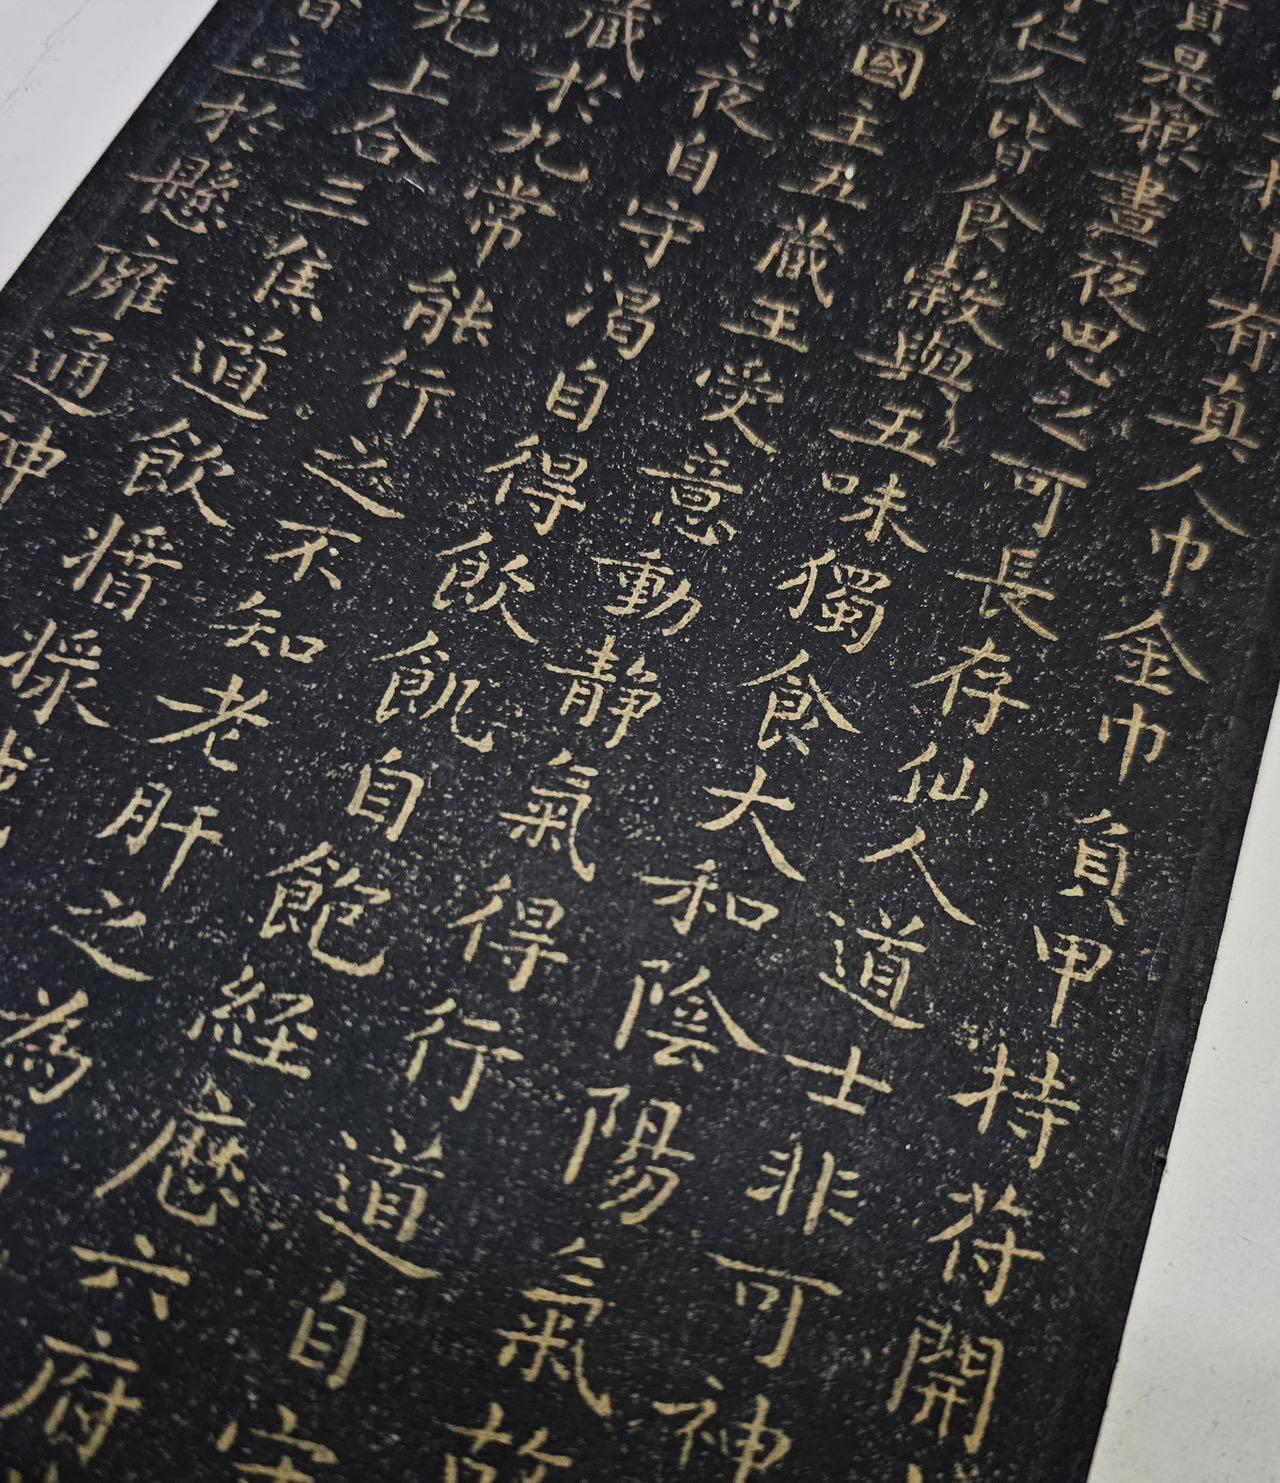 中有真人巾金巾負甲持符開
是根晝夜思之可長存仙人道士非可神
人皆食穀與五味獨食大和陰陽氣故
為國主五藏王受意動靜氣得行道自守
夜自守渴自得飲飢自飽経歷六府
藏於九常能行之不知老肝之為
光上合三焦道飲醬漿
立於懸廱通神